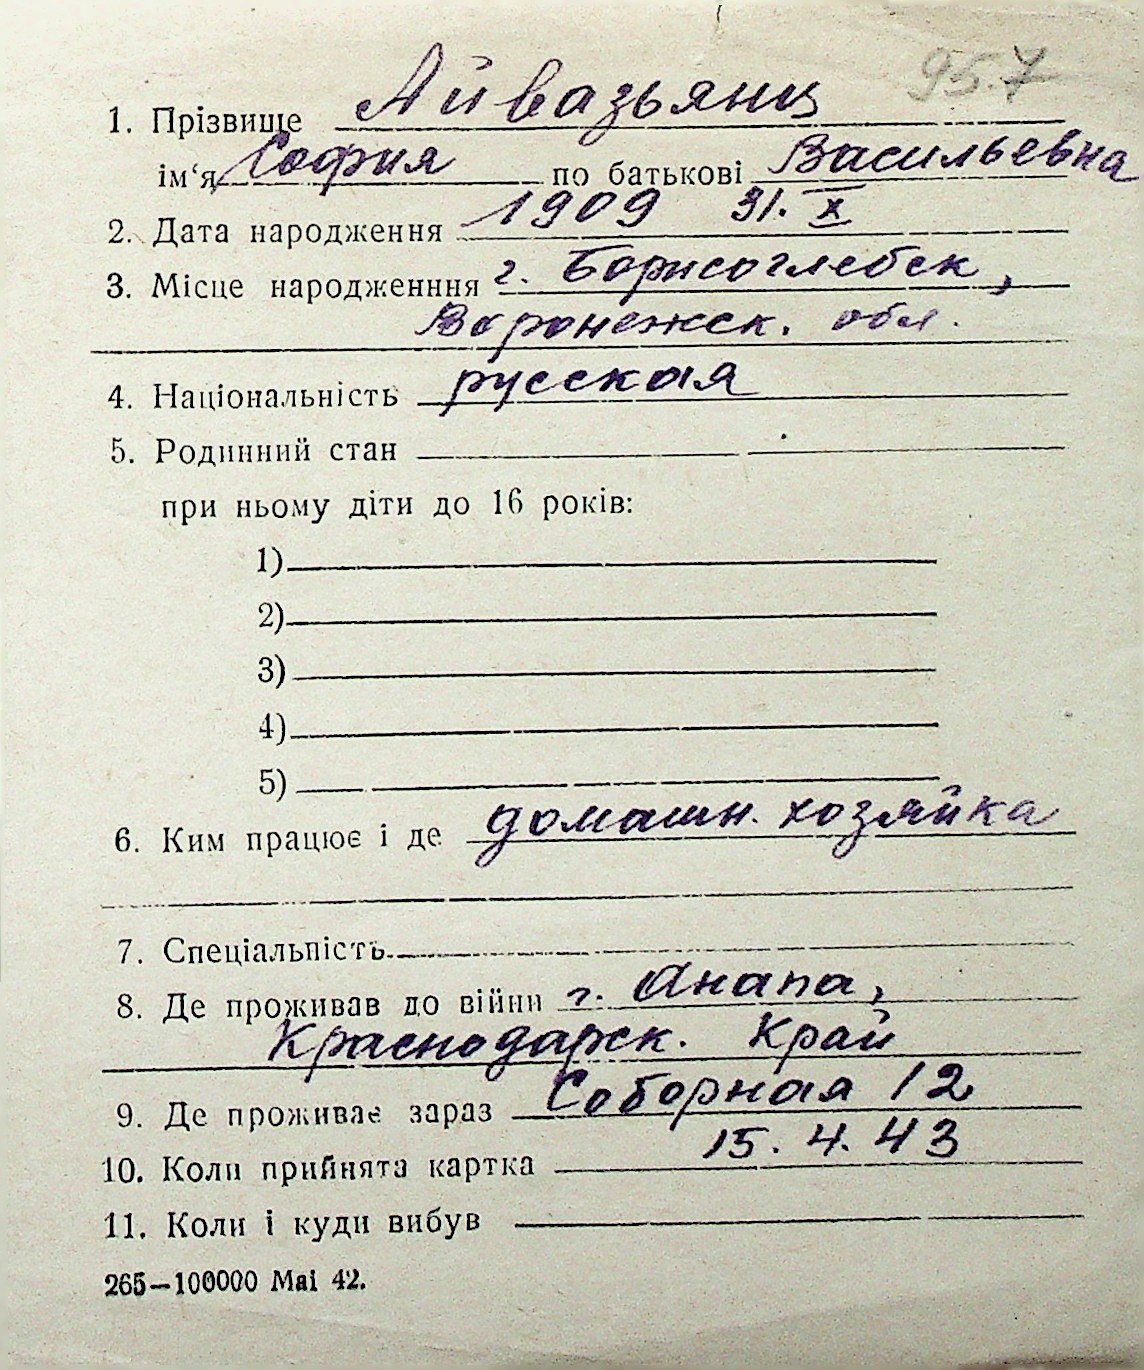 95.7
1. Прізвище Айвазьянц
ім‘я София по батькові Васильевна
2. Дата народження 1909 31. X
3. Місце народженння г. Борисоглебск,
Воронежск. обл.
4. Національність русская
5. Родинний стан
при ньому діти до 16 років:
1)
2)
3)
4)
5)
6. Ким працює і де домашн. хозяйка
7. Спеціальність
8. Де проживав до війни г. Анапа,
Краснодарск. Край
9. Де проживає зараз Соборная 12
10. Коли прийнята картка 15. 4. 43
11. Коли і куди вибув
265—100000 Mai 42.